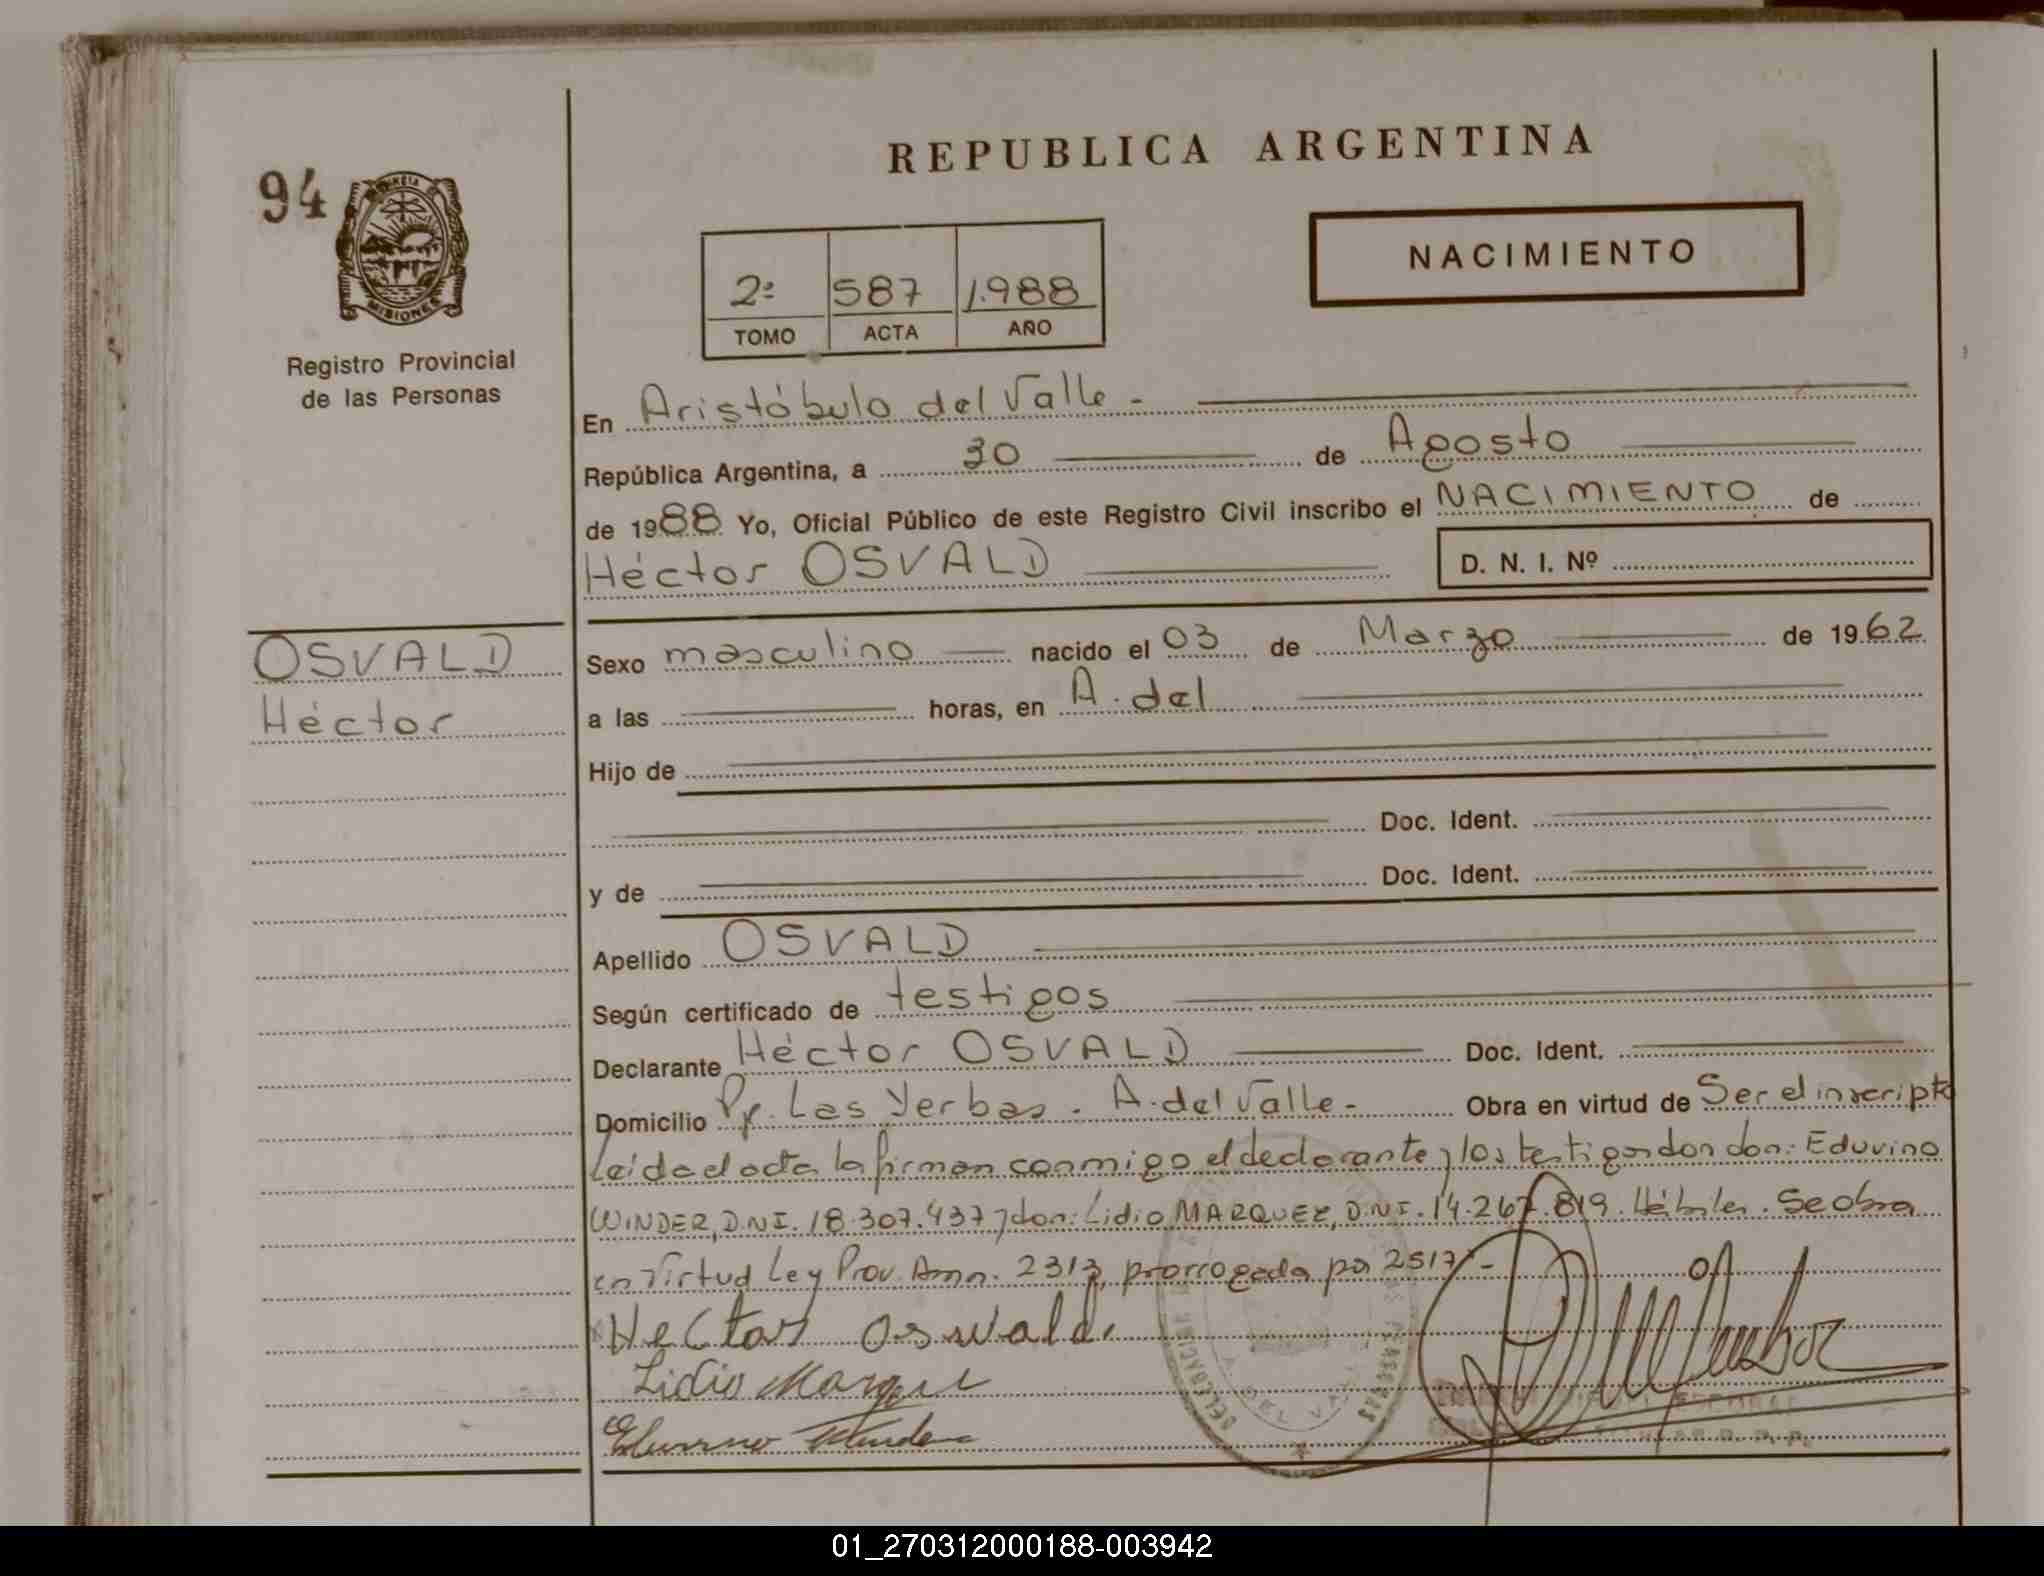 REPUBLICA ARGENTINA
94
MISIONES
Registro Provincial
de las Personas
NACIMIENTO
2º 587 1.988
TOMO ACTA AÑO
En Aristóbulo del Valle -
República Argentina, a 30 de Agosto
de 1988 Yo, Oficial Público de este Registro Civil inscribo el NACIMIENTO de
Héctor OSVALD D. N. I. Nº
OSVALD
Héctor
Sexo masculino nacido el 03 de Marzo de 1962
a las horas, en A. del
Hijo de
Doc. Ident.
y de Doc. Ident.
Apellido OSVALD
Según certificado de testigos
Declarante Héctor OSVALD Doc. Ident.
Domicilio Pje. Las Yerbas. A. del Valle- Obra en virtud de Ser el inscripto
Leída el acta la firman conmigo el declarante y los testigos don don: Eduvino
WINDER, D.N.I. 18.307.437 y don: Lidio MARQUEZ, D.N.I. 14.267.819. Hábiles. Se obra
en Virtud Ley Prov. Amn. 2313, prorrogada por 2517-
Hector Oswald.
Lidio Marque
DEL VALLE
01_270312000188-003942